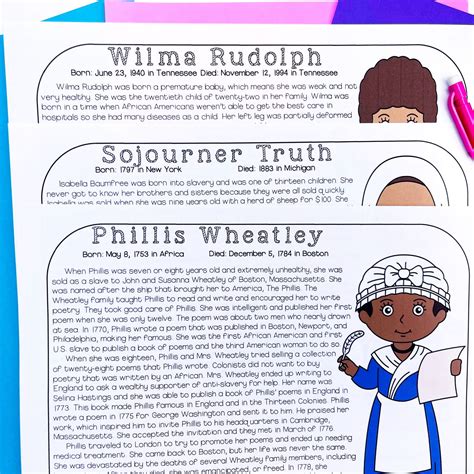 Wilma Rudolph
Born: June 23, 1940 in Tennessee Died: November 12, 1994 in Tennessee
Wilma Rudolph was born a premature baby, which means she was weak and not
very healthy. She was the twentieth child of twenty-two in her family. Wilma was
born in a time when African Americans weren't able to get the best care in
hospitals so she had many diseases as a child. Her left leg was partially deformed
Sojourner Truth
Born: 1797 in New York Died: 1883 in Michigan
Isabella Baumfree was born into slavery and was one of thirteen children. She
never got to know her brothers and sisters because they were all sold quickly.
Isabella was sold when she was nine years old with a herd of sheep for $100. She
Phillis Wheatley
Born: May 8, 1753 in Africa Died: December 5, 1784 in Boston
When Phillis was seven or eight years old and extremely unhealthy, she was
sold as a slave to John and Susanna Wheatley of Boston, Massachusetts. She
was named after the ship that brought her to America, The Phillis. The
Wheatley family taught Phillis to read and write and encouraged her to write
poetry. They took good care of Phillis. She was intelligent and published her first
poem when she was only twelve. The poem was about two men who nearly drown
at sea. In 1770, Phillis wrote a poem that was published in Boston, Newport, and
Philadelphia, making her famous. She was the first African American and first
U.S. slave to publish a book of poems and the third American woman to do so.
When she was eighteen, Phillis and Mrs. Wheatley tried selling a collection
of twenty-eight poems that Phillis wrote. Colonists did not want to buy
poetry that was written by an African. Mrs. Wheatley ended up writing to
England to ask a wealthy supporter of anti-slavery for help. Her name was
Selina Hastings and she was able to publish a book of Phillis' poems in England
in 1773. This book made Phillis famous in England and in the Thirteen Colonies. Phillis
wrote a poem in 1775 for George Washington and sent it to him. He praised her
work, inspiring him to invite Phillis to his headquarters in Cambridge,
Massachusetts. She accepted the invitation and they met in March of 1776.
Phillis traveled to London to try to promote her poems and ended up needing
medical treatment. She came back to Boston, but her life was never the same